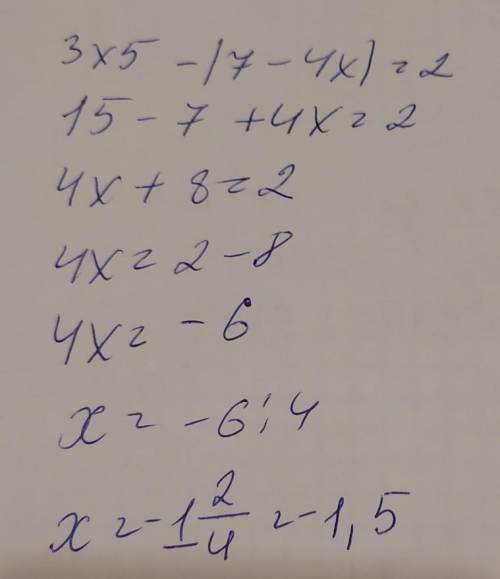 3x5 - (7 - 4x) = 2
15 - 7 + 4x = 2
4x + 8 = 2
4x = 2 - 8
4x = - 6
x = - 6 : 4
x = - 1 2/4 = - 1,5